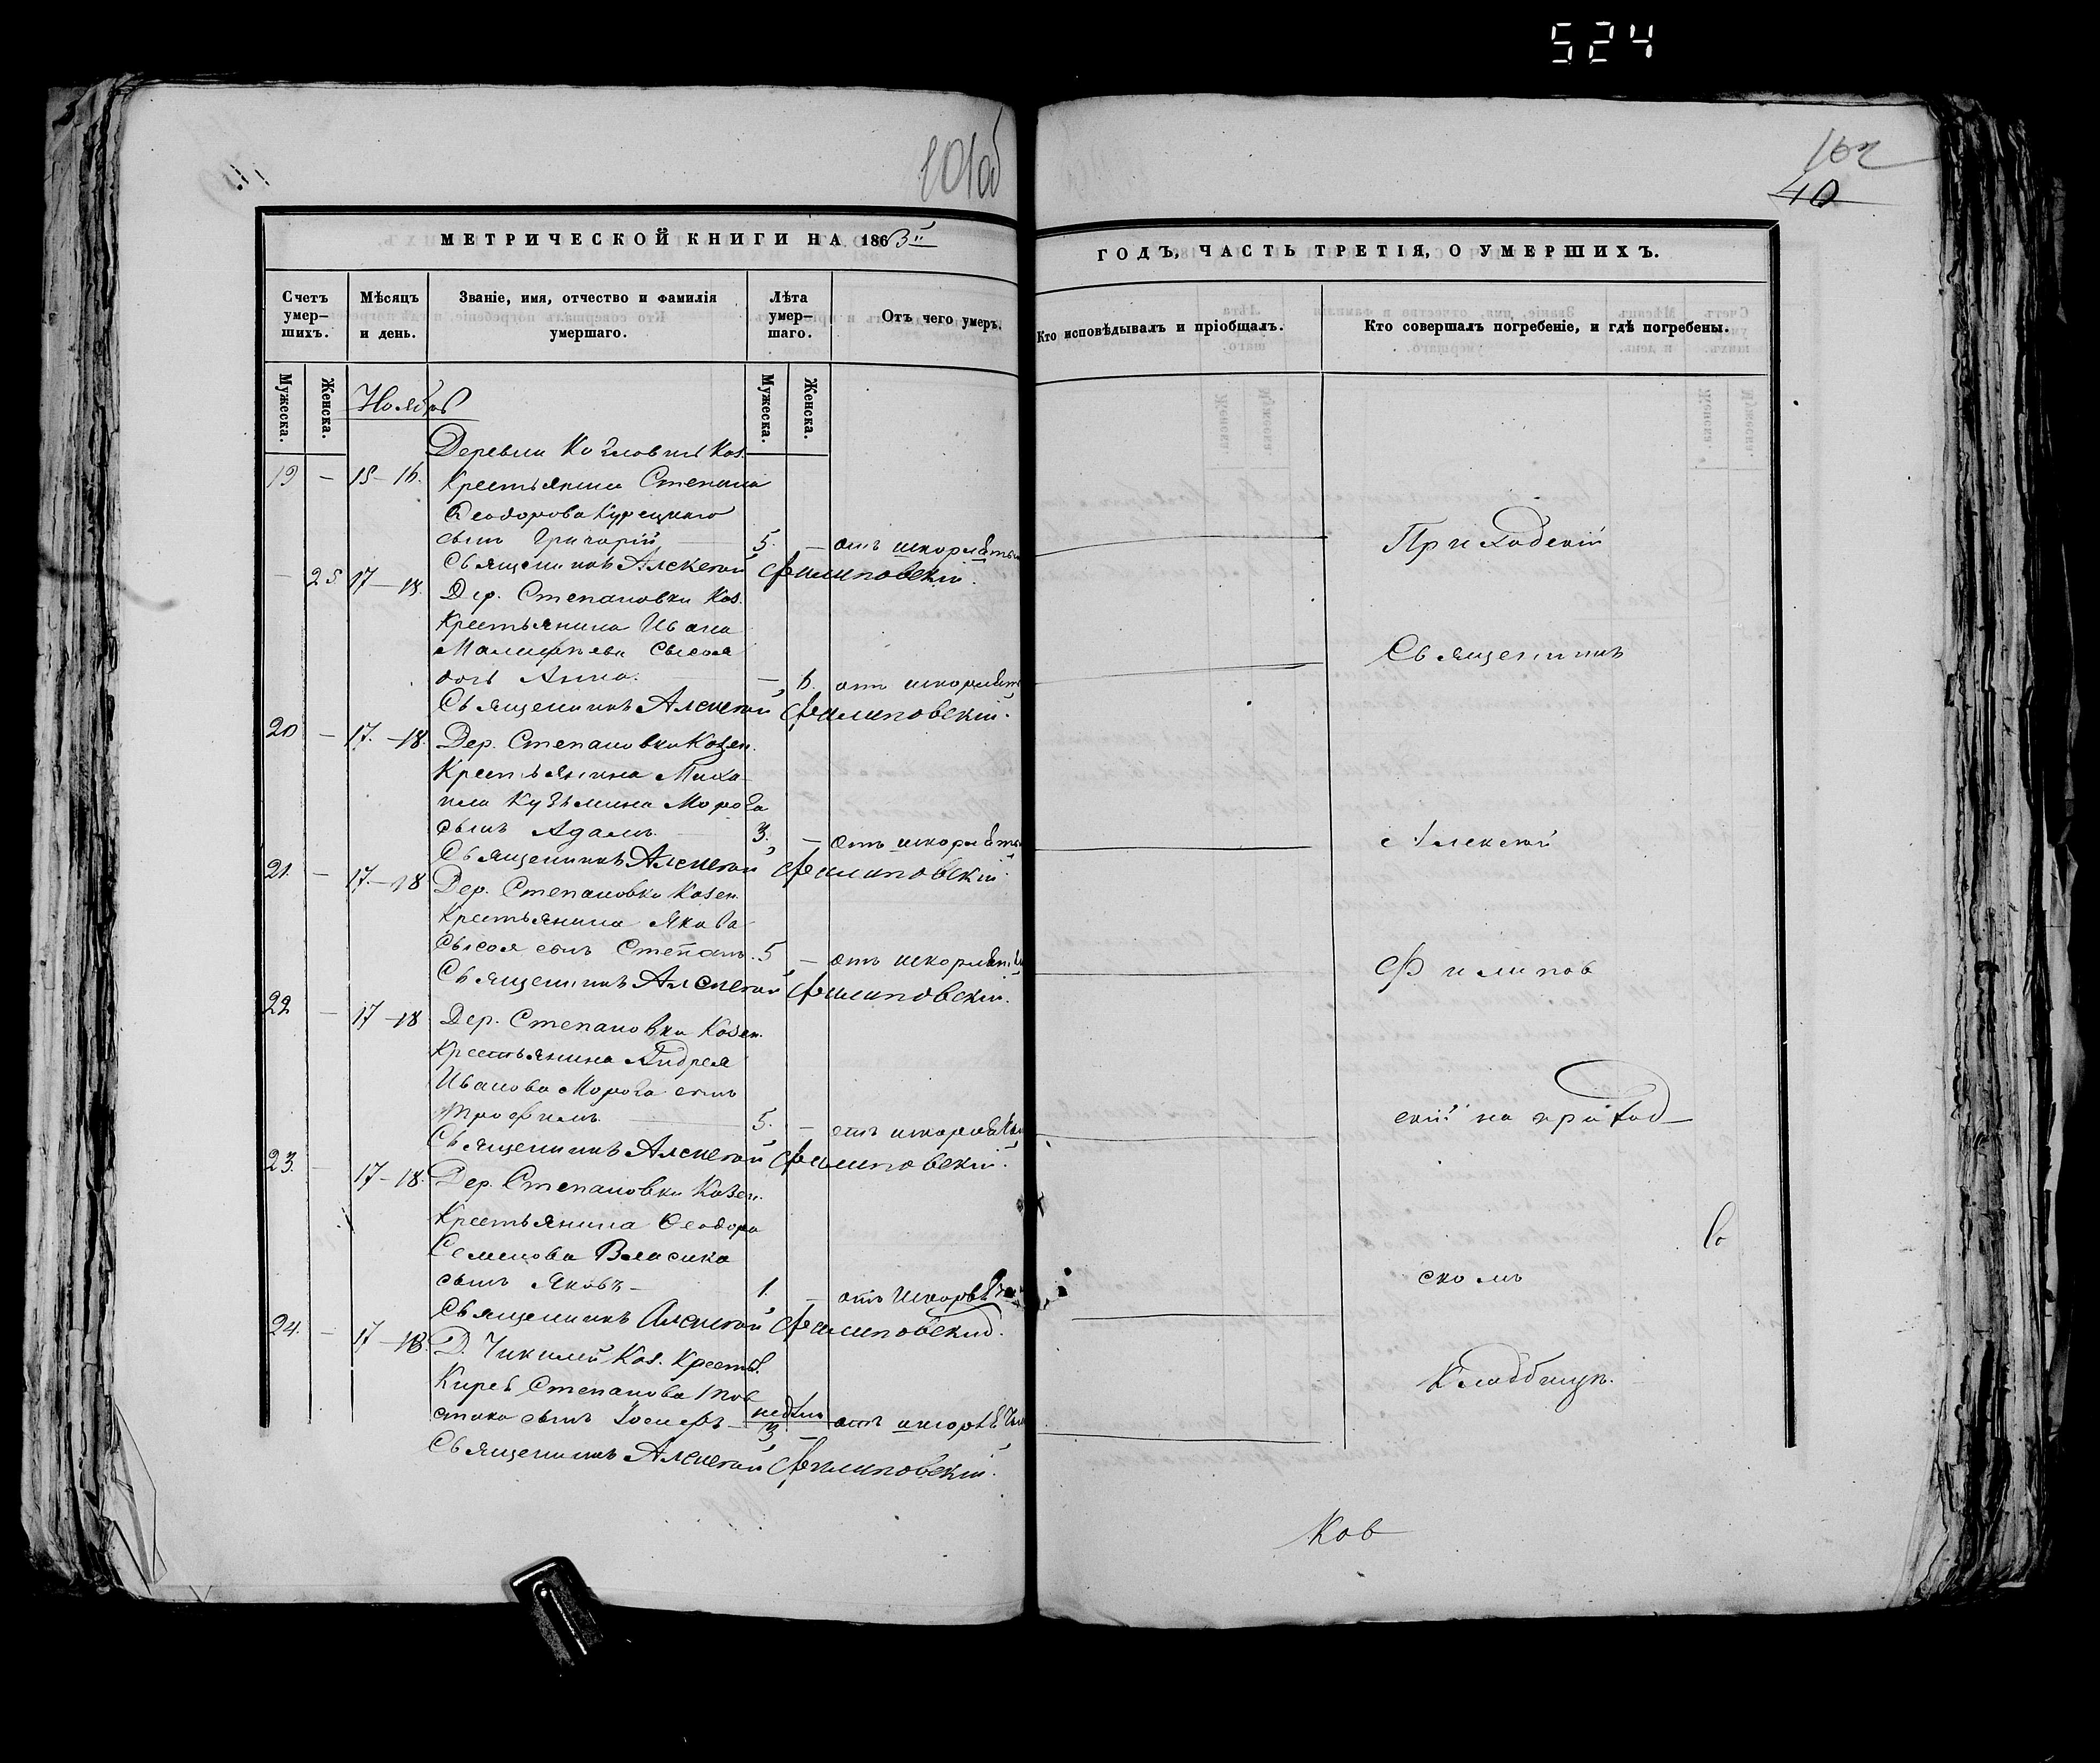 524
101об
102
40
МЕТРИЧЕСКОЙ КНИГИ НА 1863й
ГОДЪ, ЧАСТЬ ТРЕТІЯ, О УМЕРШИХЪ.
Счетъ умер-шихъ.
Мѣсяцъ и день.
Званіе, имя, отчество и фамилія умершаго.
Лѣта умер-шаго.
Отъ чего умеръ.
Кто исповѣдывалъ и пріобщалъ.
Кто совершалъ погребеніе, и гдѣ погребены.
Мужеска.
Женска.
Мужеска.
Женска.
Ноябрь
Деревни Каз.
19 — 15-16. Крестьянина Степана
Ѳеодорова Курецкаго
сынъ Григорій 5. — отъ
Священникъ Алексѣй Филиповскій.
— 25 17-18. Дер. Степановки Каз.
Крестьянина Ивана
Сысоя
дочь Анна. — 6. отъ
Священникъ Алексѣй Филиповскій.
20 — 17.-18. Дер. Степановки Казен.
Крестьянина Миха-
ила Кузьмина Мороза
сынъ Адамъ. 3. — отъ
Священникъ Алексѣй Филиповскій.
21. — 17.-18 Дер. Степановки Казен.
Крестьянина Якова
Сысоя сынъ Степанъ. 5 — отъ
Священникъ Алексѣй Филиповскій.
22 — 17-18 Дер. Степановки Казен.
Крестьянина Андрея
Иванова Мороза сынъ
Трофимъ. 5. — отъ
Священникъ Алексѣй Филиповскій.
23. — 17-18. Дер. Степановки Казен.
Крестьянина Ѳеодора
Семенова Власика
сынъ Яковъ 1. — отъ
Священникъ Алексѣй Филиповскій.
24. — 17-18. Д. Каз. Крестья.
Степанова
сынъ 3 — отъ
Священникъ Алексѣй Филиповскій.
Приходскій
Священникъ
Алексѣй
Филипов
скій на приход
скомъ
Кладбищѣ.
Ков